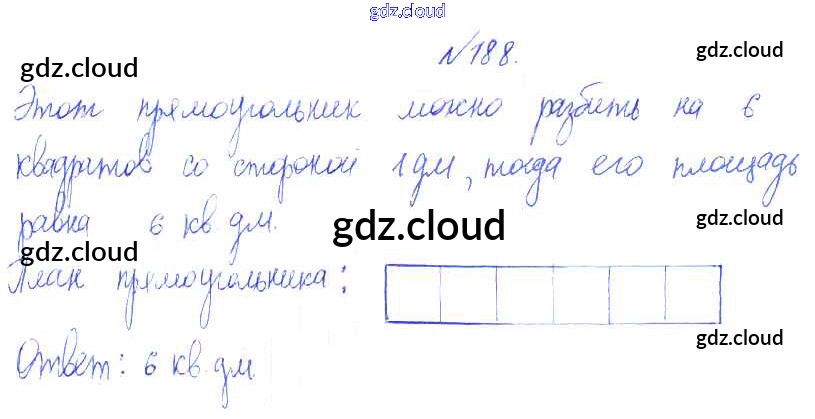 gdz.cloud
№188.
gdz.cloud
gdz.cloud
Этот прямоугольник можно разбить на 6
квадратов со стороной 1 дм, тогда его площадь
gdz.cloud
равна 6 кв. дм.
gdz.cloud
gdz.cloud
План прямоугольника:
gdz.cloud
Ответ: 6 кв. дм.
gdz.cloud